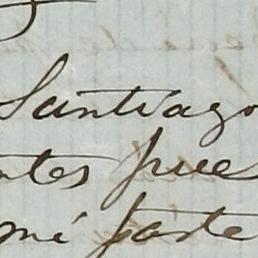 Santiago
ntes pue
mi parte